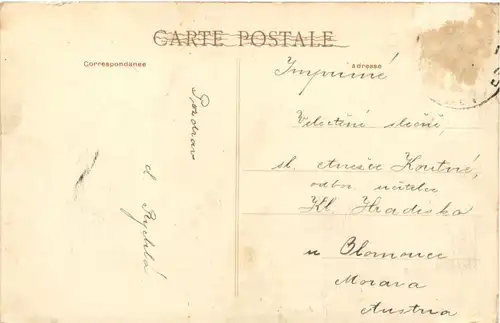 CARTE POSTALE
Correspondance
adresse
Imprimé
Pozdrav
d. Rychlá
Velectěné slečně,
sl. Anešce Koutné,
odbor. učitelce
Kl. Hradisko
u Olomouce
Morava
Austria